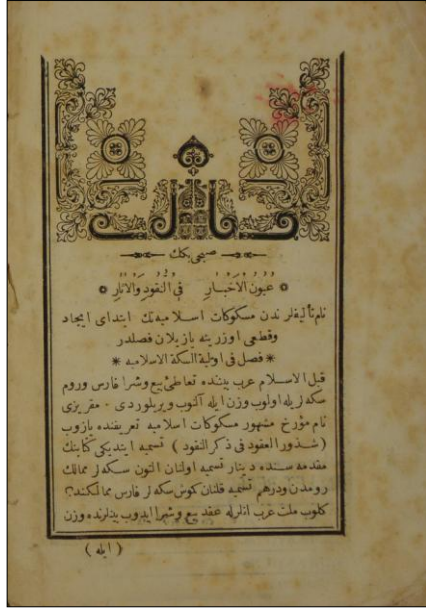 صبحی بك
عُيُونُ الْأَخْبَارِ فِي النُّقُودِ وَالْآثَارِ
نام تأليفلر ندن مسكوكات اسلاميه نك ابتداى ايجاد
وقطعى اوزرينه يازيلان فصلدر
* فصل فى اولية السكة الاسلاميه *
قبل الاسلام عرب بيننده تعاطئ بيع وشرا فارس وروم
سكه لريله اولوب وزن ايله آلنوب ويريلوردى - مقريزى
نام مؤرخ مشهور مسكوكات اسلاميه تعريفنده يازوب
( شذور العقود فى ذكر النقود ) تسميه ايتديكى كتابنك
مقدمه سنده دينار تسميه اولنان التون سكه لر ممالك
رومدن ودرهم تسميه قلنان كوش سكه لر فارس ممالكندن
كلوب ملت عرب انلرله عقد بيع وشرا ايدوب بينلرنده وزن
( ايله )